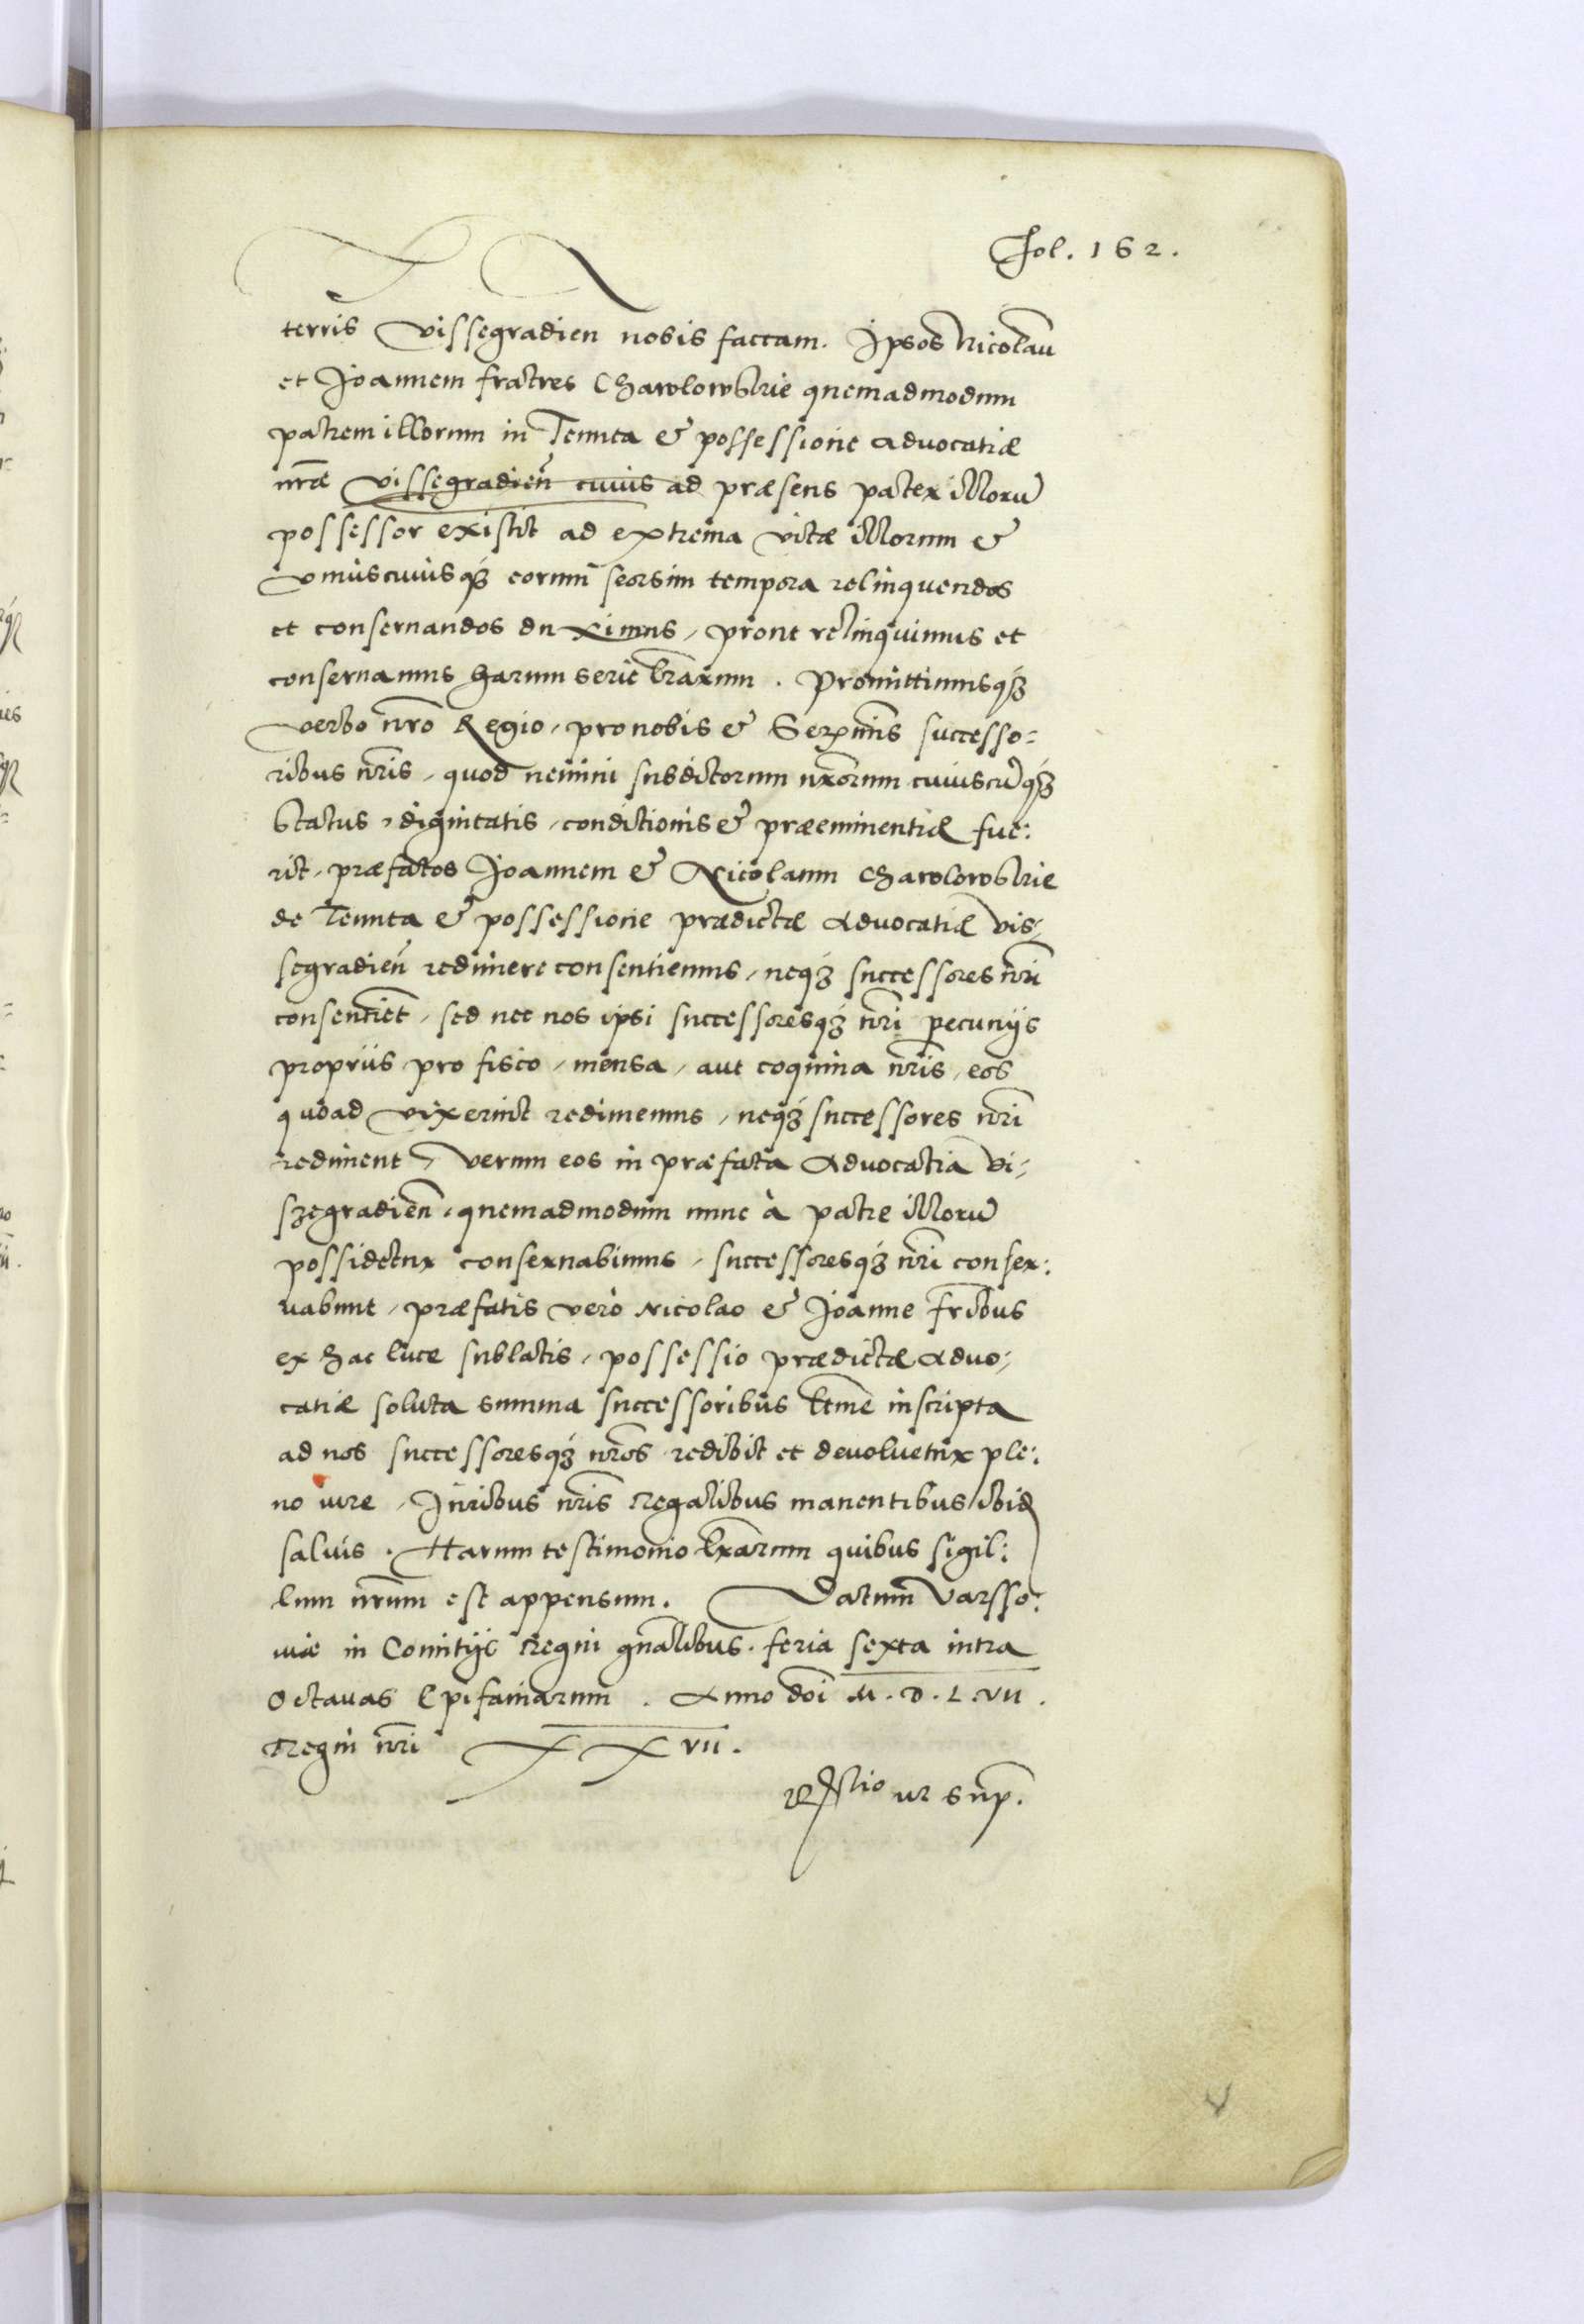 Fol. 162.
terris Vissegradien nobis factam. Ipsos Nicolaū
et Joannem fratres Chawlowskie quemadmodum
patrem illorum in Tenuta & possessione advocatiæ
nr̄æ Vissegradieñ cuius ad præsens pater illorū
possessor existit ad extrema vitæ illorum &
vniuscuiusq3 eorum seorsim tempora relinquendos
et conseruandos duximus, prout relinquimus et
conseruamus harum serie lr̄arum. Promittimusq3
verbo nr̄o Regio, pro nobis & Sermīs successo=
ribus nr̄is, quod nemini subditorum nr̄orum cuiuscūq3
status, dignitatis, conditionis & præeminentiæ fue:
rit, præfatos Joannem & Nicolaum Chawlowskie
de Tenuta & possessione prædictæ Advocatiæ Vis-
segradieñ redimere consentiemus, neq3 successores nr̄i
consentiēt, sed nec nos ipsi successoresq3 nr̄i pecunijs
propriis pro fisco, mensa, aut coquina nr̄is, eos
quoad vixerint redimemus, neq3 successores nr̄i
rediment, verum eos in præfata Advocatia Vi-
szegradieñ, quemadmodum nunc à patre illorū
possidetur conseruabimus, successoresq3 nr̄i conser:
uabunt, præfatis verò Nicolao & Joanne fr̄ibus
ex hac luce sublatis, possessio prædictæ Advo-
catiæ soluta summa successoribus ltīme inscripta
ad nos successoresq3 nr̄os redibit et devoluetur ple:
no iure, Juribus nr̄is Regalibus manentibus ibid
saluis. Harum testimonio lr̄arum quibus sigil:
lum nr̄um est appensum. Datum Varsso:
uiæ in Comitijs Regni gn̄alibus. feria sexta intra
Octauas Epifaniarum. Anno doī M.D.L.VII.
Regni nr̄i XXVII.
Rltio ut sup̄.